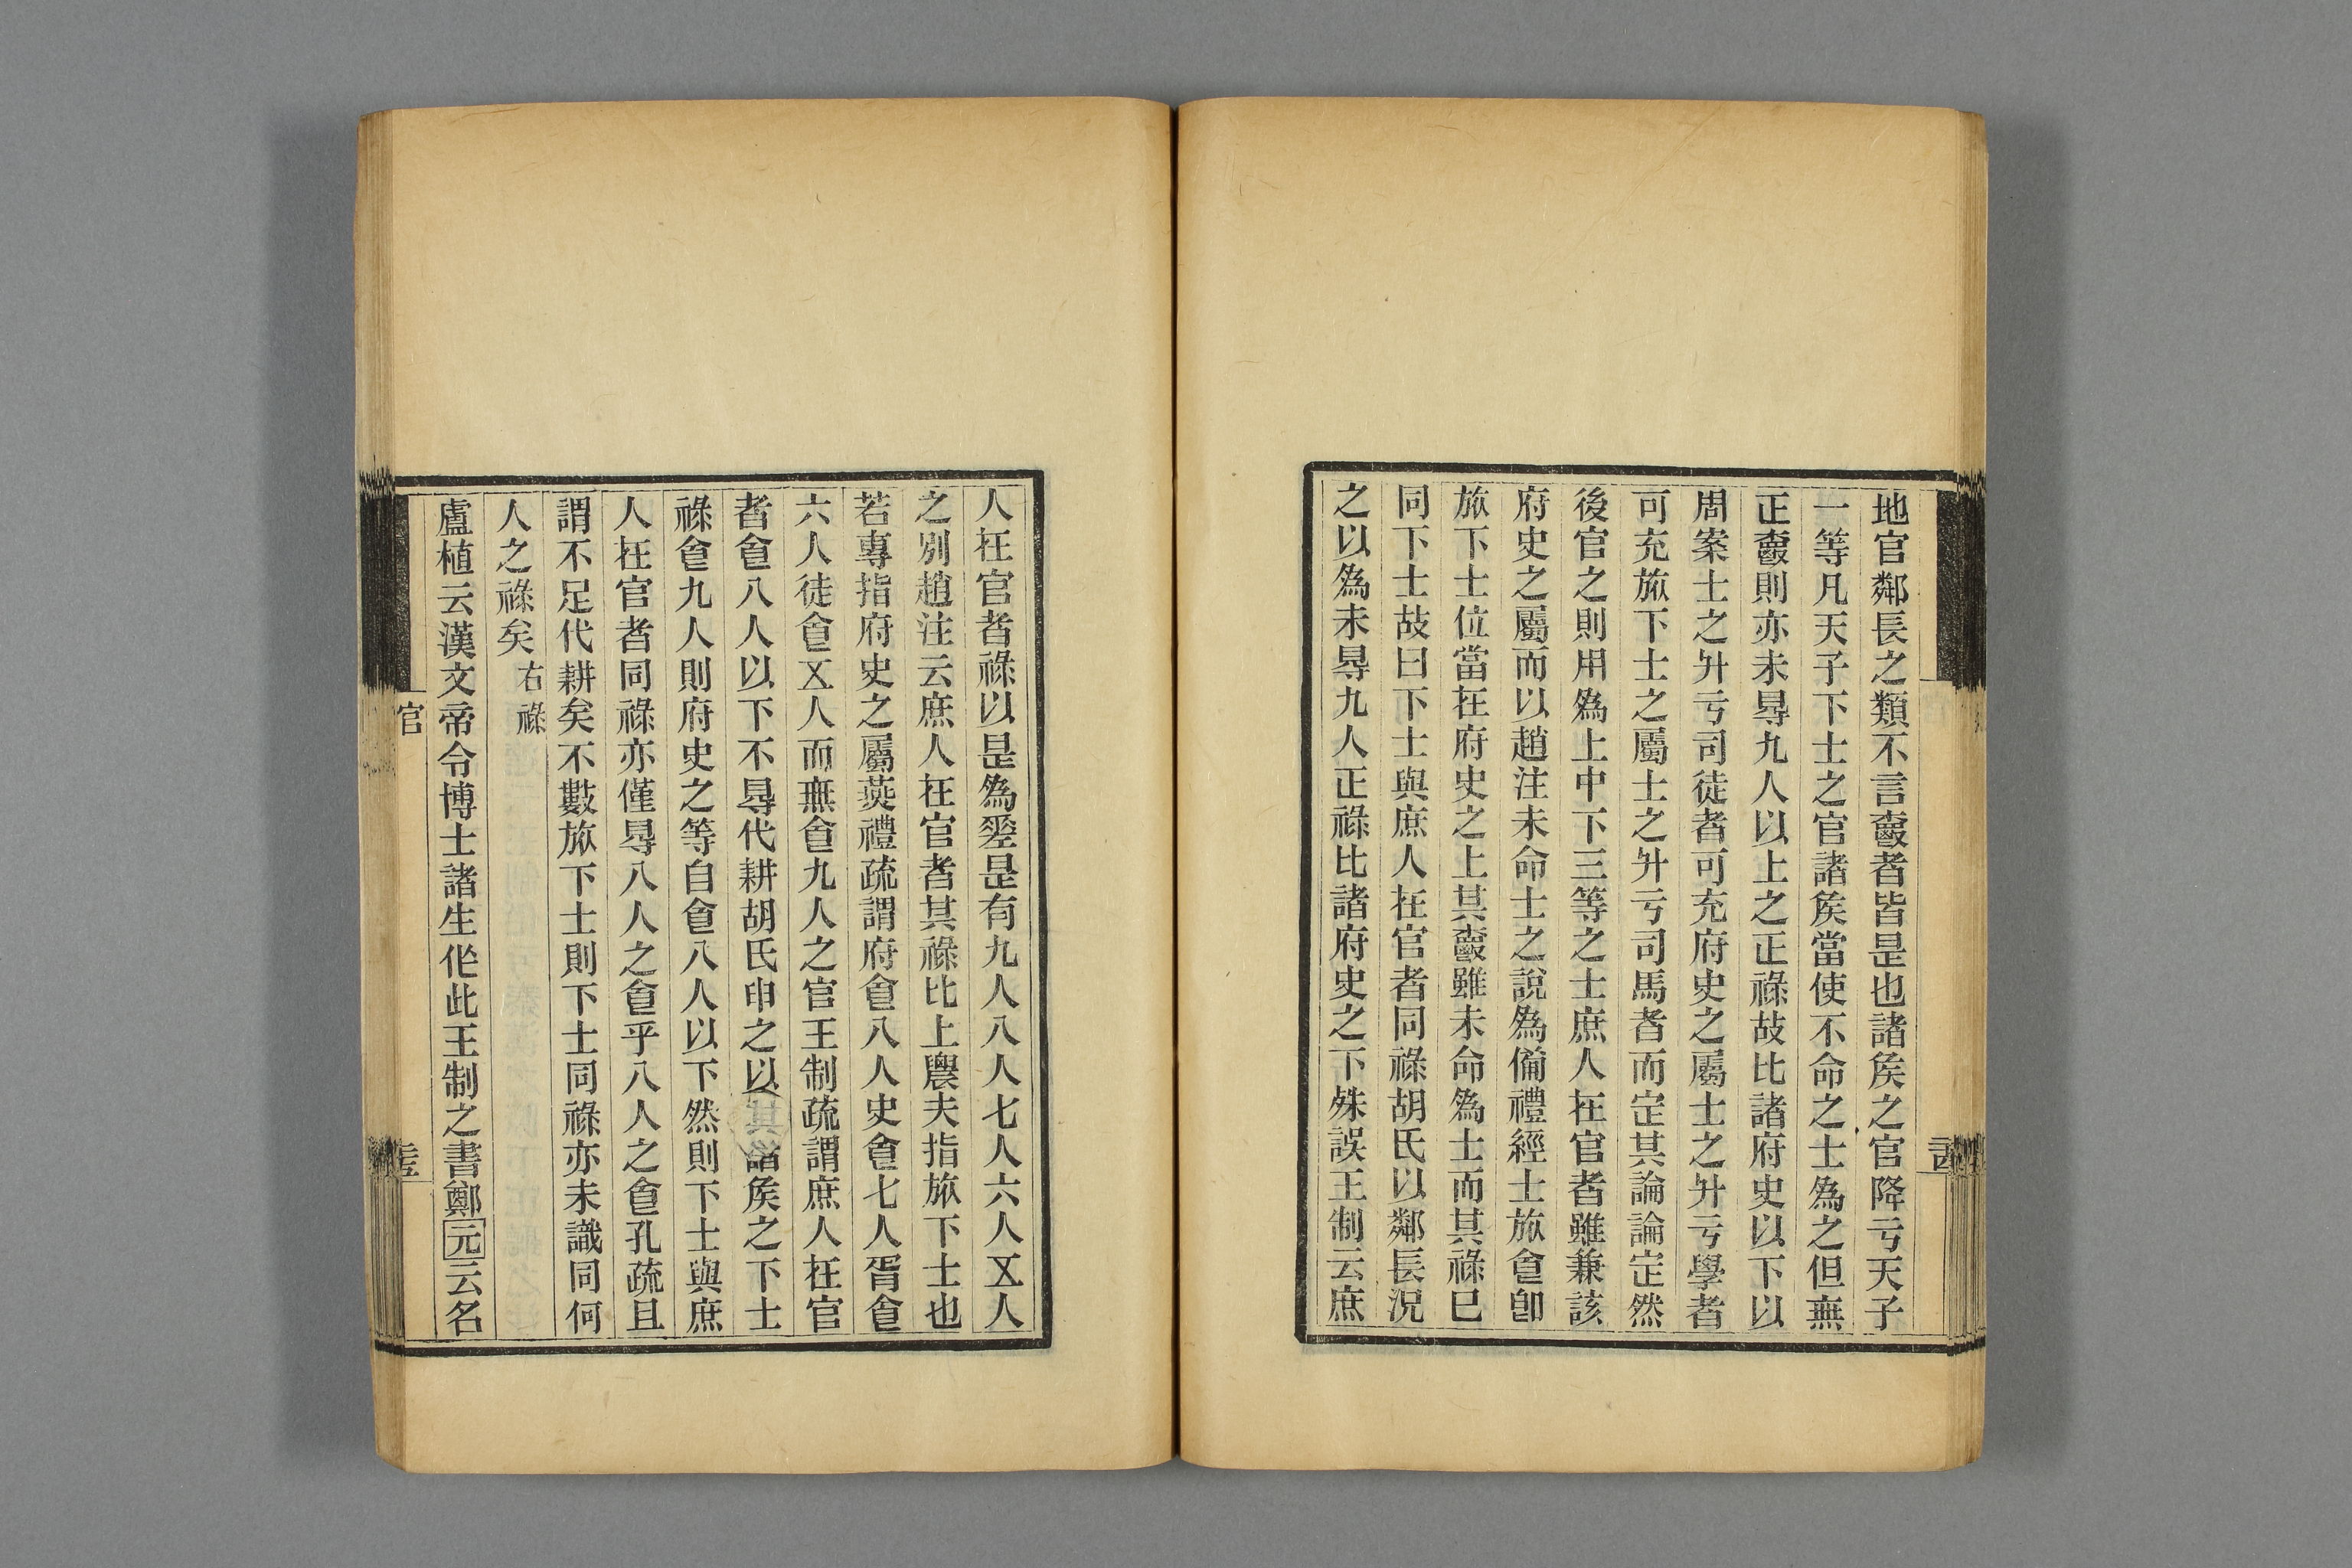 地官鄰長之類不言爵者皆昰也諸矦之官降亏天子
一等凡天子下士之官諸矦當使不命之士爲之但無
正爵則亦未㝵九人以上之正祿故比諸府史以下以
周案士之升亏司徒者可充府史之屬士之升亏學者
可充旅下士之屬士之升亏司馬者而定其論論定然
後官之則用爲上中下三等之士庶人在官者雖兼該
府史之屬而以趙注未命士之說爲僃禮經士旅食卽
旅下士位當在府史之上其爵雖未命爲士而其祿已
同下士故曰下士與庶人在官者同祿胡氏以鄰長況
之以爲未㝵九人正祿比諸府史之下殊誤王制云庶
官
人在官者祿以昰爲差昰有九人八人七人六人㐅人
之別趙注云庶人在官者其祿比上農夫指旅下士也
若專指府史之屬燕禮疏謂府食八人史食七人胥食
六人徒食㐅人而無食九人之官王制疏謂庶人在官
者食八人以下不㝵代耕胡氏申之以其諸矦之下士
祿食九人則府史之等自食八人以下然則下士與庶
人在官者同祿亦僅㝵八人之食乎八人之食孔疏且
謂不足代耕矣不數旅下士則下士同祿亦未識同何
人之祿矣 右祿
盧植云漢文帝令博士諸生作此王制之書鄭元云名
官